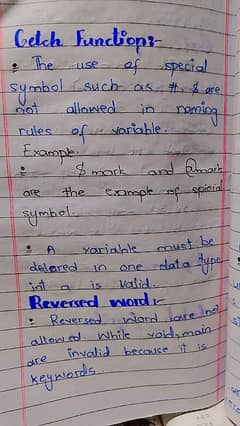 Getch Function:-
• The use of special
symbol such as #, $ are
not allowed in naming
rules of variable.
Example.
• $ mark and @mark
are the example of spicial
symbol.
• A variable must be
delared in one data type
int a is valid.
Reversed word:-
• Reversed word are not
allowed. While void, main
are invalid because it is
keywords.